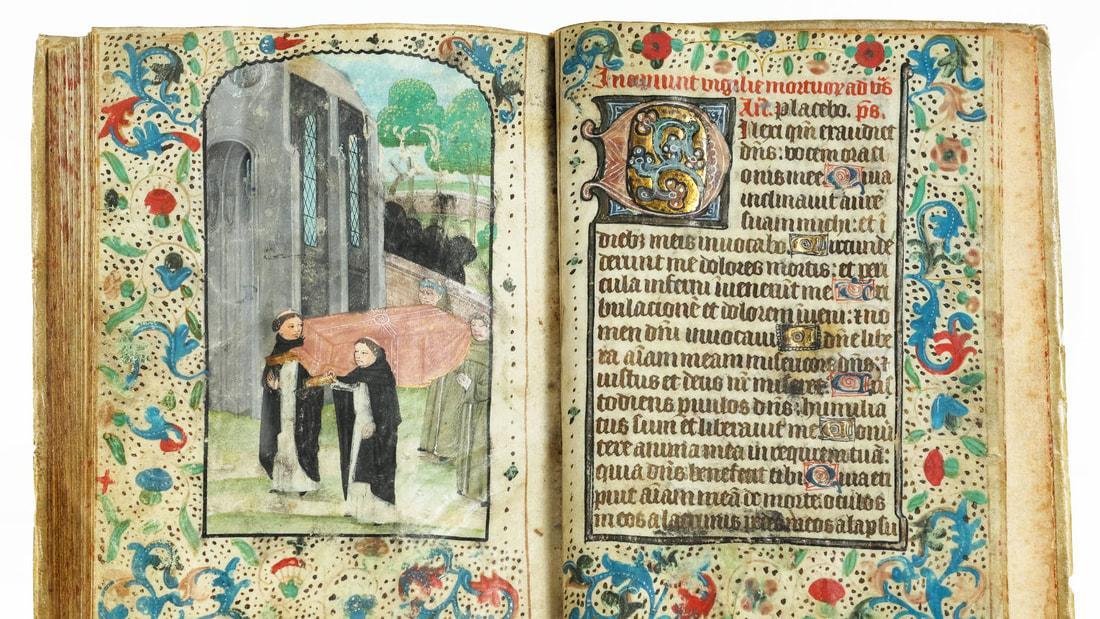 Incipiunt vigilie mortuor ad vs
An. placebo. ps.
Dilexi qm exaudiet
dns: vocem orati
onis mee Quia
inclinavit aure
suam michi: et i
dieb meis invocabo Circunde
derunt me dolores mortis: et peri
cula inferni invenerunt me Tri
bulatione et dolorem inveni: et no
men dni invocavi O dne libe
ra aiam meam misericors dns: et
iustus et deus nr miseret Cus
todiens pvulos dns: humilia
tus sum et liberavit me Convu
tere anima mea in requiem tua:
quia dns benefecit tibi Quia eri
puit aiam mea de morte: oculos
meos a lacrimis pedes meos a lapsu